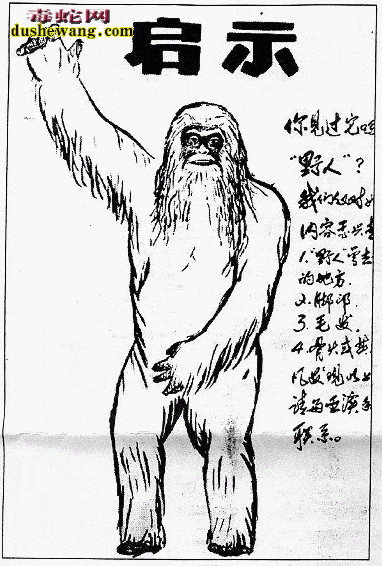 毒蛇网
dushewang.com
启示
你见过它吗
"野人"？
我们
内容
1."野人"
的地方.
2.脚印.
3.毛发.
4.骨头或
凡发现以上
请与
联系。